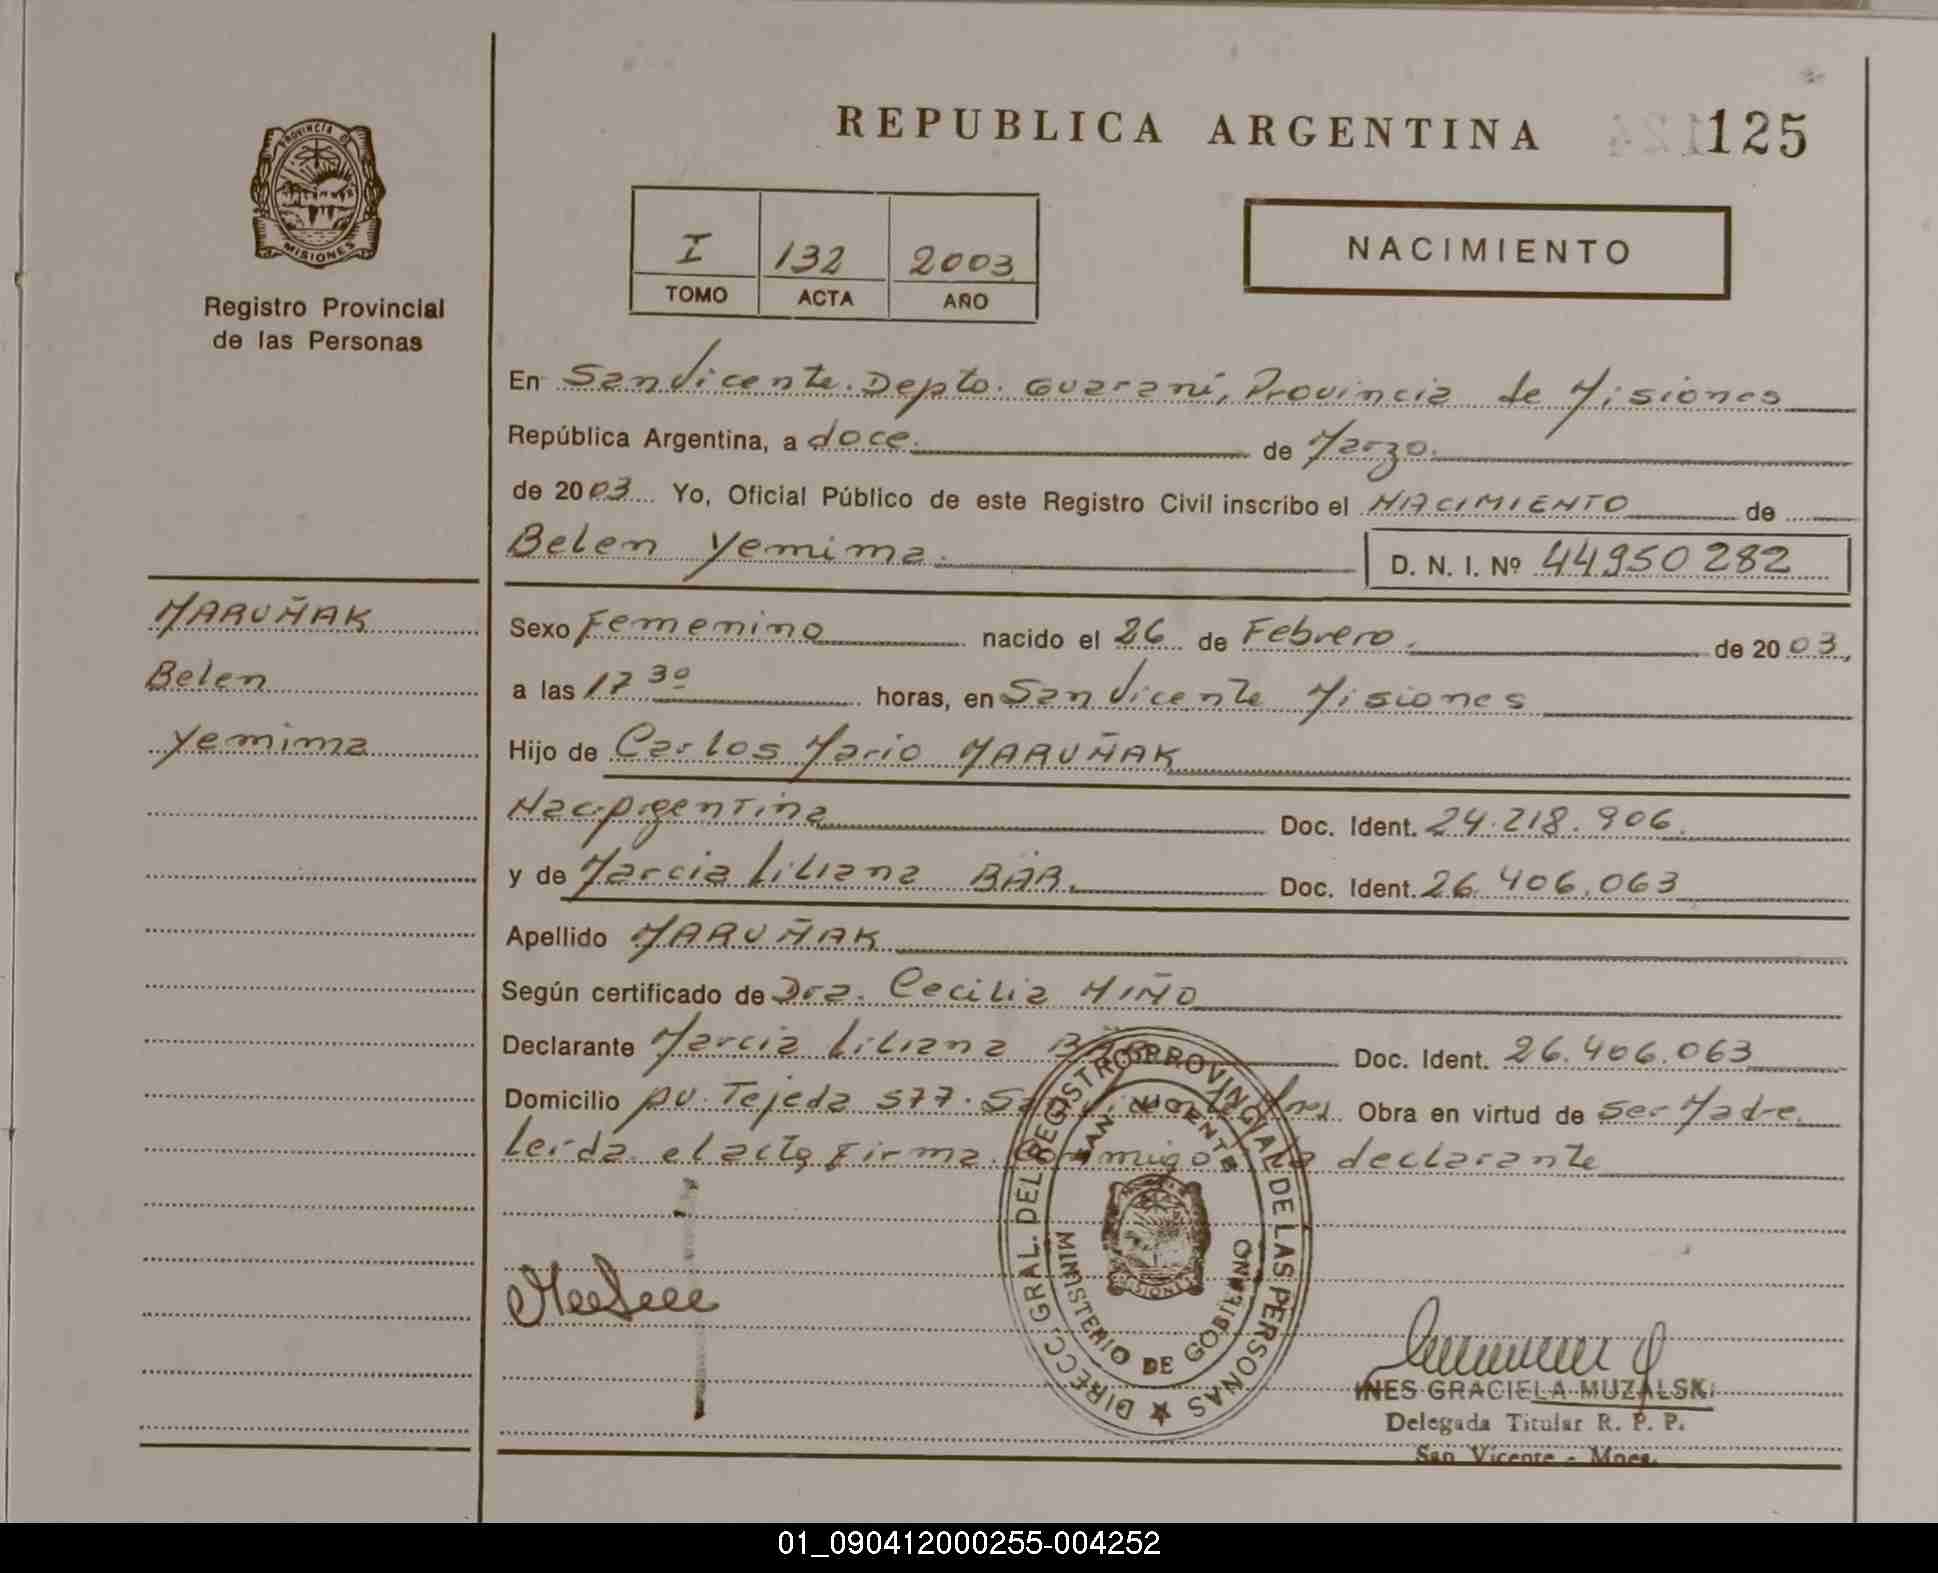 REPUBLICA ARGENTINA 125
PROVINCIA DE
MISIONES
Registro Provincial
de las Personas
I 132 2003
TOMO ACTA AÑO
NACIMIENTO
En San Vicente. Depto. Guaraní, Provincia de Misiones
República Argentina, a doce de Marzo.
de 2003 Yo, Oficial Público de este Registro Civil inscribo el NACIMIENTO de
Belen Yemima. D. N. I. Nº 44950282
MARUÑAK
Belen
Yemima
Sexo Femenino nacido el 26 de Febrero. de 2003,
a las 17 30 horas, en San Vicente Misiones
Hijo de Carlos Mario MARUÑAK
Nac. Argentina Doc. Ident. 24.218.906.
y de Marcia Liliana BÄR. Doc. Ident. 26.406.063
Apellido MARUÑAK
Según certificado de Dra. Cecilia MIÑO
Declarante Marcia Liliana BÄR Doc. Ident. 26.406.063
Domicilio Av. Tejeda 577. San Vicente Mnes. Obra en virtud de ser Madre.
Leida el acta firma conmigo la declarante
DIRECC. GRAL. DEL REGISTRO PROVINCIAL DE LAS PERSONAS
SAN VICENTE
MINISTERIO DE GOBIERNO
MISIONES
INES GRACIELA MUZALSKI
Delegada Titular R. P. P.
San Vicente - Mnes.
01_090412000255-004252